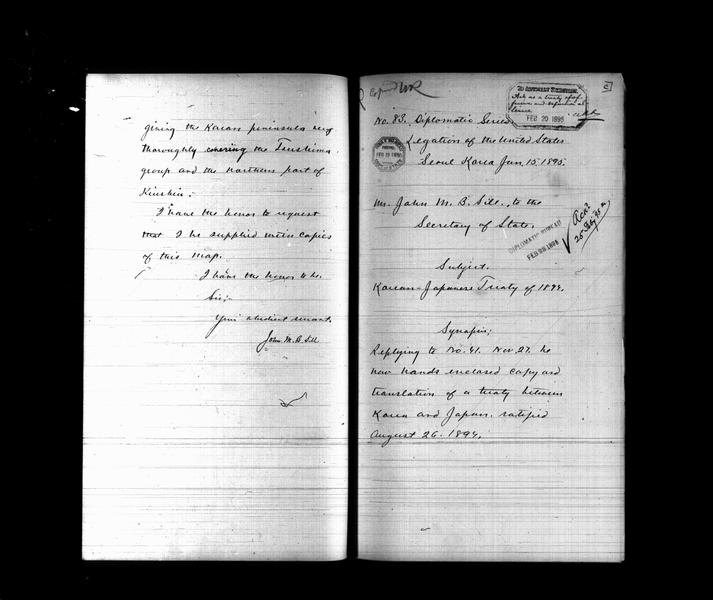 giving the Korean peninsula very
thoroughly covering the Tsushima
group and the northern part of
Kiushiu.
I have the honor to request
that I be supplied with copies
of this map.
I have the honor to be.
Sir;
Your obedient servant.
John M. B. Sill
C
FEB 20 1895
No. 83. Diplomatic Series
Legation of the United States
Seoul Korea Jan. 15. 1895.
Mr. John M. B. Sill., to the
Secretary of State.
DIPLOMATIC BUREAU
FEB 23 1895
Subject.
Korean-Japanese Treaty of 1894.
Synopsis;
Replying to No. 41. Nov. 27. he
now hands enclosed copy and
translation of a treaty between
Korea and Japan. ratified
August 26. 1894.